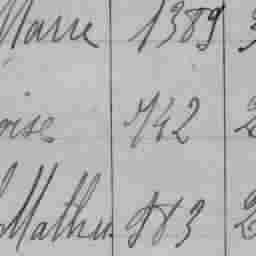 Marie 1389 3
oise 742 2
Mathu 883 2